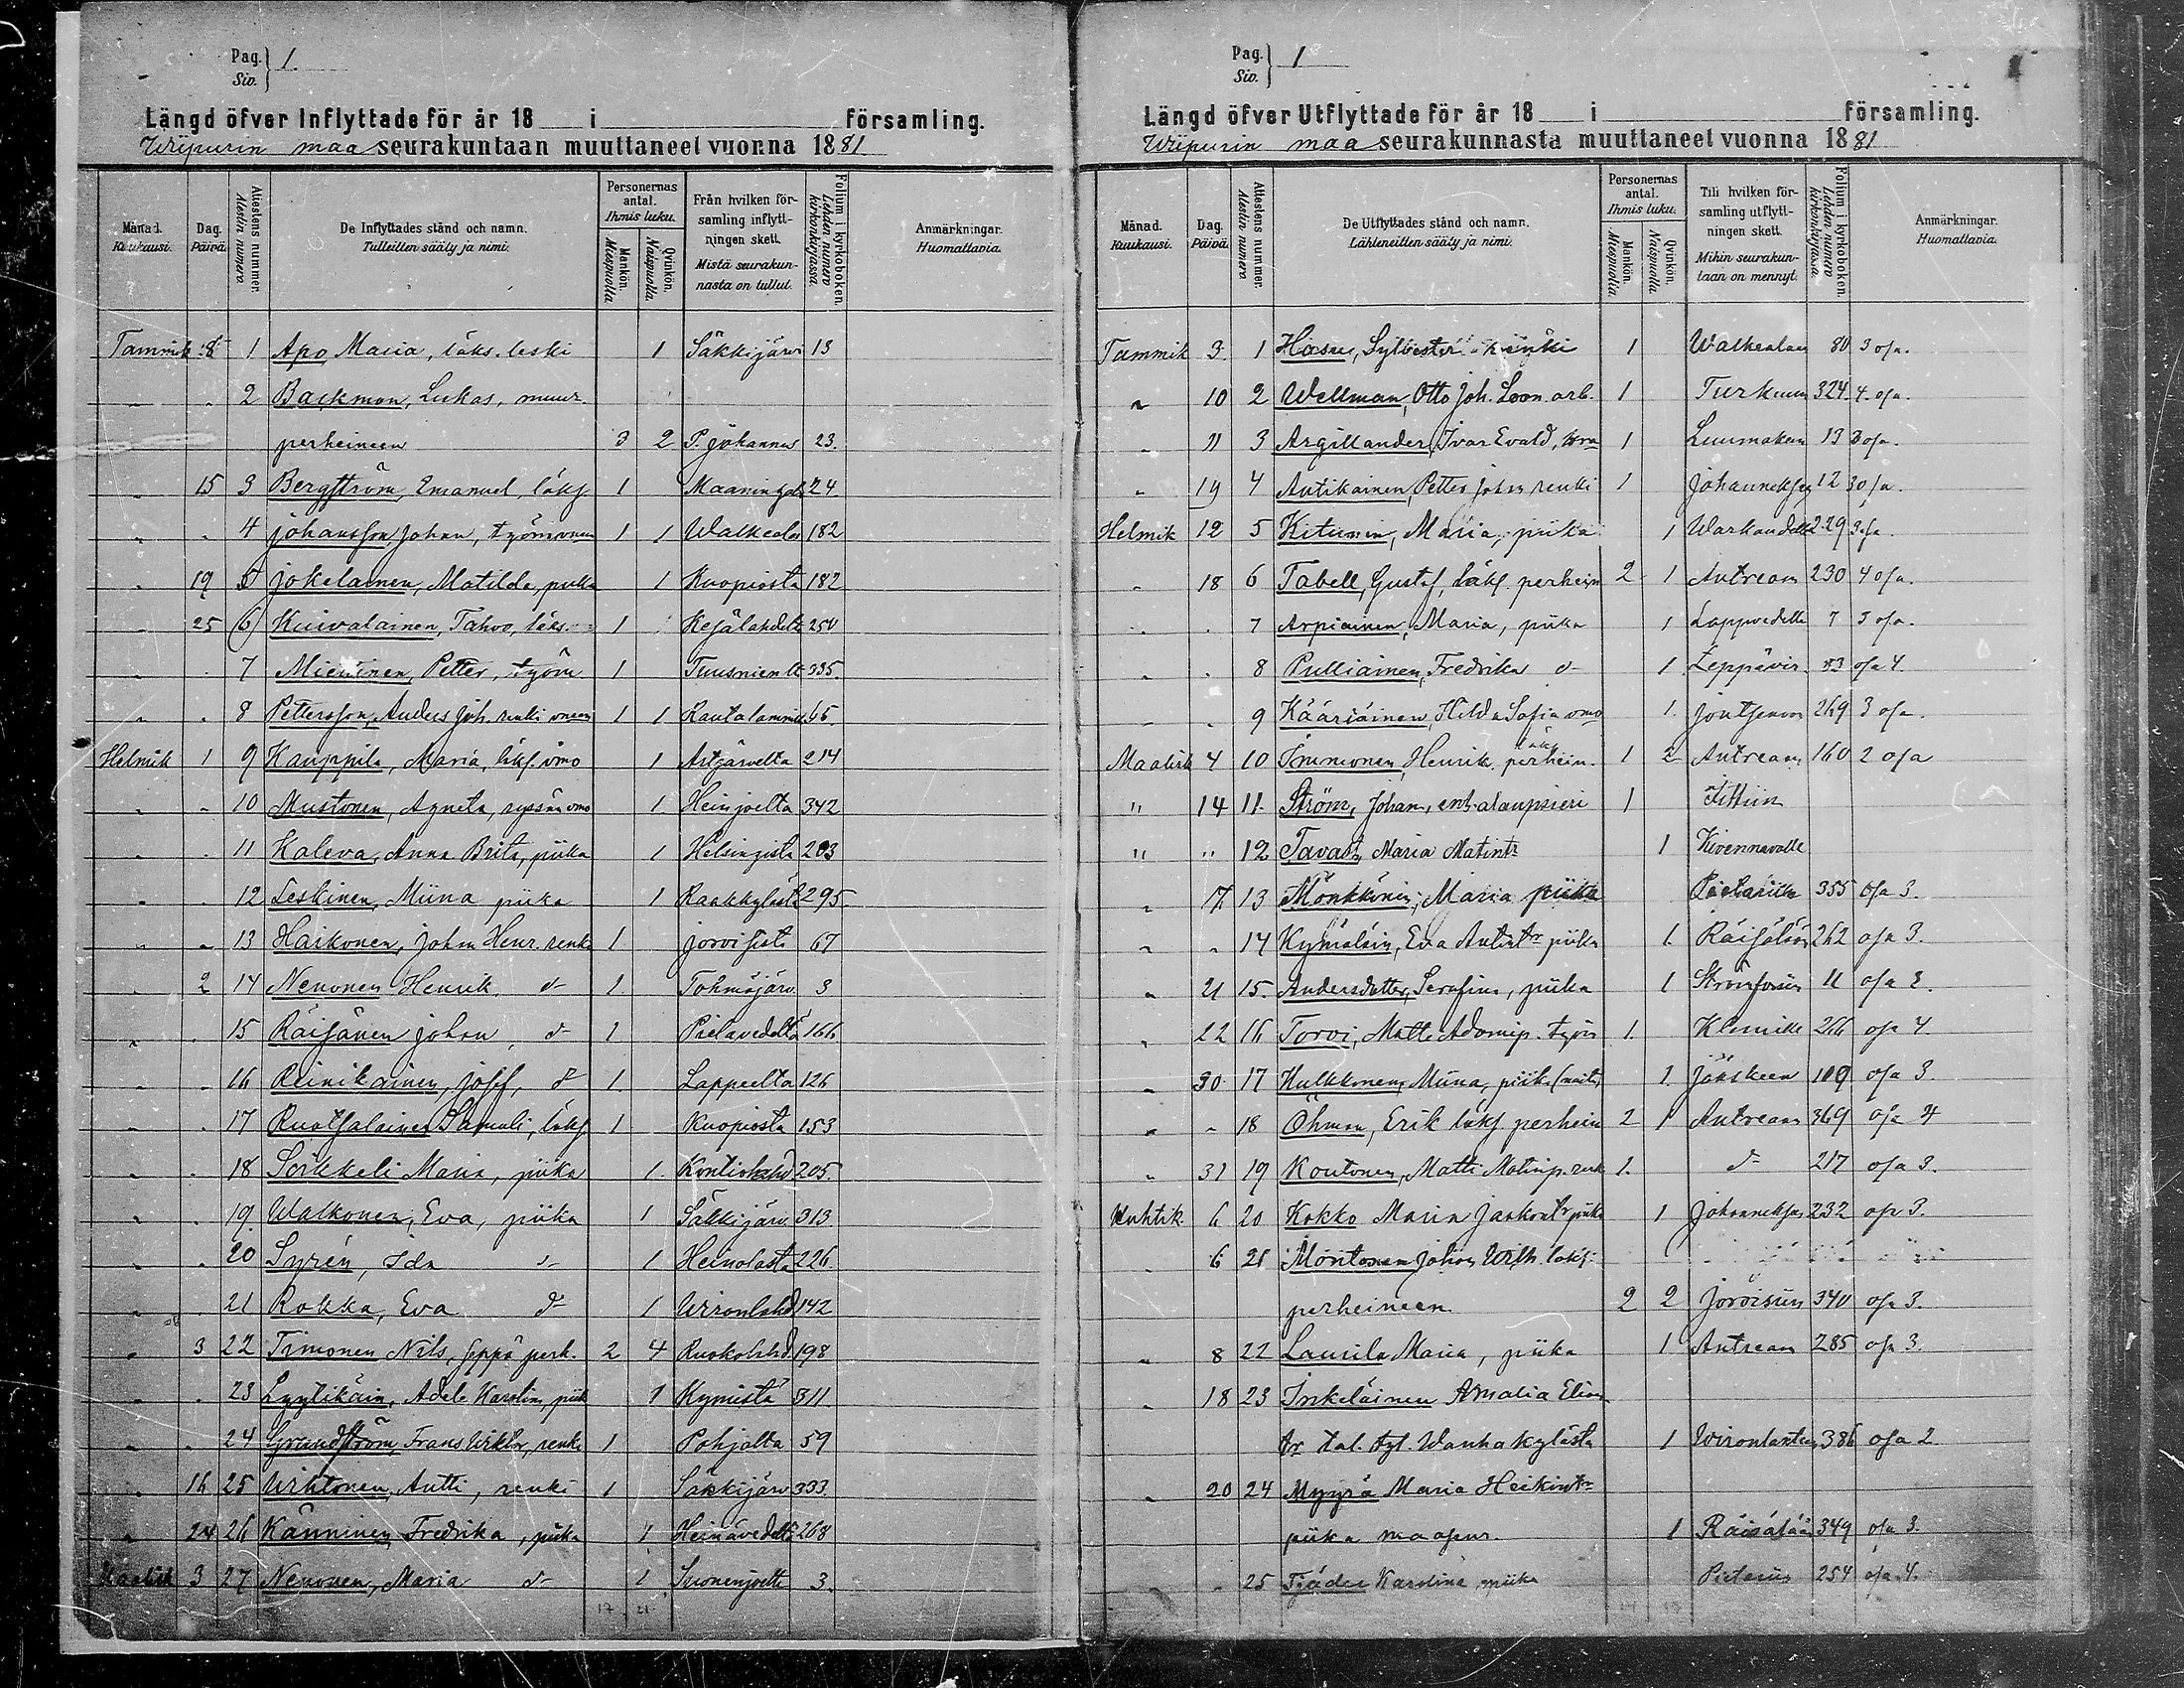 Pag. Siv. } 1.
Längd öfver Inflyttade för år 18 i församling.
Wiipurin maa seurakuntaan muuttaneet vuonna 1881
Månad. Kuukausi. Dag. Päivä. Attestens nummer. Atestin numero De Inflyttades stånd och namn. Tulleitten sääty ja nimi. Personernas antal. Ihmis luku. Mankön. Miespuolia Qvinkön. Naispuolia Från hvilken församling inflyttningen skett. Mistä seurakunnasta on tullut. Folium i kyrkoboken. Lehden numero kirkonkirjassa. Anmärkningar. Huomattavia.
Tammik 8 1 Apo, Maria, läks. leski 1 Säkkijärv 13
" " 2 Backman, Lukas, muur.
perheineen 3 2 P. Johannes 23.
" 15 3 Bergström, Emanuel, läks 1 Maaningalt 24
" " 4 Johansson Johan, työm 1 1 Walkeal 182
" 19 5 Jokelainen, Matilda, piika 1 Kuopiosta 182
" 25 6 Kuivalainen, Tahvo, läks. 1 250
" 7 Mieninen, Petter, työm 1 Tuusnien 335.
" " 8 Pettersson, Anders Joh. renki 1 1 Rautalammi
Helmik 1 9 Kauppila, Maria, läks. vmo 1 Artjärveltä 214
" " 10 Mustonen, Agneta, vmo 1. Heinjoelta 342
" " 11 Kaleva, Anna Brita, piika 1 Helsingistä 203
" " 12 Leskinen, Miina piika 1 295
" " 13 Haikonen, Johan Henr. renki 1 67
" 2 14 Nenonen Henrik d:o 1 Tohmajärv 3
" " 15 Räisänen Johan, d:o 1 Pielavedeltä 166
" " 16 Reinikainen, Josef, d:o 1 Lappeelta 126
" " 17 Ruotsalainen Samuli, läks 1 Kuopiosta 153
" " 18 Sorkkeli Maria, piika 1. Kontiolahd 205.
" " 19. Walkonen, Eva, piika 1 Säkkijärv 313
" " 20 Syrén, Ida d:o 1 Heinolasta 226
" " 21 Rokka, Eva d:o 1 Wironlahd 142
" 3 22 Timonen Nils, seppä perh. 2 4 Ruokolahd. 198
" " 23 Lyytikäin, Adele Karolin, piik 1 Kymistä 311
" " 24 Grundström, Frans Viktor, renki 1 Pohjalta 59
" 16 25 Wihtonen, Antti, renki 1 Säkkijärv 333
" 24 26 Känninen Fredrika, piika 1 Heinävedeltä 268
Maalisk 3 27 Nenonen, Maria d:o 1 Suonenjoelta 3.
17 21
Pag. Siv. } 1
Längd öfver Utflyttade för år 18 i församling.
Wiipurin maa seurakunnasta muuttaneet vuonna 1881
Månad. Kuukausi. Dag. Päivä. Attestens nummer. Atestin numero De Utflyttades stånd och namn. Lähteneitten sääty ja nimi. Personernas antal. Ihmis luku. Mankön. Miespuolia Qvinkön. Naispuolia Till hvilken församling utflyttningen skett. Mihin seurakuntaan on mennyt. Folium i kyrkoboken. Lehden numero kirkonkirjassa. Anmärkningar. Huomattavia.
Tammik 3. 1 Sylvester 1 Walkealan 80 3 osa.
" 10 2 Wellman, Otto Joh. Leon. arb. 1 Turkuun 324 4. osa.
" 11 3 Argillander, Ivar Evald, 1 Luumäkeen 13 3 osa.
" 19 4 Antikainen, Petter Johan renki 1 Johannek 12 3 osa.
Helmik 12 5 Maria, piika 1 229 3 osa.
" 18 6 Tabell, Gustaf, läks. perhein 2 1 Antrean 230 4 osa.
" " 7 Arpiainen, Maria, piika 1 Lappvedelle 7 3 osa.
" " 8 Pulliainen, Fredrika d:o 1 Leppävir. osa 4.
" " 9 Kääriäinen, Hilda Sofia vmo 1. Joutsenon 269 3 osa.
Maalisk 4 10 Immonen, Henrik läks perhein. 1 2 Antrean 160 2 osa
" 14 11. Ström, Johan, ent. 1
" " 12 Tavast, Maria Matint:r 1 Kivennavalle
" 17. 13 Mönkkönen, Maria piika 355 osa 3.
" " 14 Kymäläin, Eva Antint:r piika 1. Räisälään 262 osa 3.
" 21 15. Andersdotter, Serafina, piika 1 Strömforsiin 11 osa 2.
" 22 16 Torvi, Matti Adamip. työm 1. 266 osa 4
" 30 17 Hulkkonen, Miina, piika 1. Jääskeen 109 osa 3.
" " 18 Öhman, Erik läks. perhein 2 1 Antrean 369 osa 4
" 31 19 Koutonen, Matti Matinp. renk 1. d:o 217 osa 3.
Huhtik. 6 20 Kokko Maria Jaakont:r piika 1 232 osa 3.
" 6 21 Johan Wilh. läks.
perheineen. 2 2 Joroisiin 340 osa 3.
" 8 22 Laurila Maria, piika 1 Antrean 285 osa 3.
" 18 23 Inkeläinen Amalia
tr tal. tyt. Wanhakylästä 1 Wironlahteen 386 osa 2.
" 20 24 Myyrä Maria Heikint:r
piika 1 Räisälään 349 osa 3.
" 25 Tjäder Karolina piika Pietariin 254 osa 4.